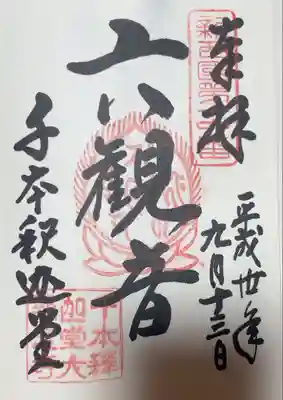 奉拝
平成卅年
九月十三日
六観音
千本釈迦堂
千本釈
迦堂大